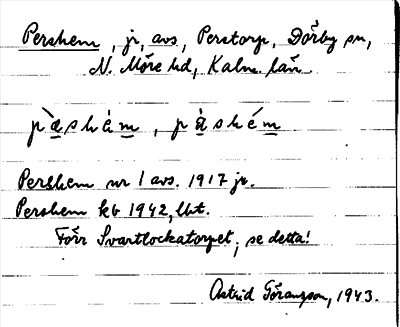 Pershem, jr, avs, Perstorp, Dörby sn,
N. Möre hd, Kalm. län
pæshèm, pæshém
Pershem nr 1 avs. 1917 jr.
Pershem kb 1942, lht.
Förr Svartlockatorpet, se detta!
Astrid Göransson, 1943.